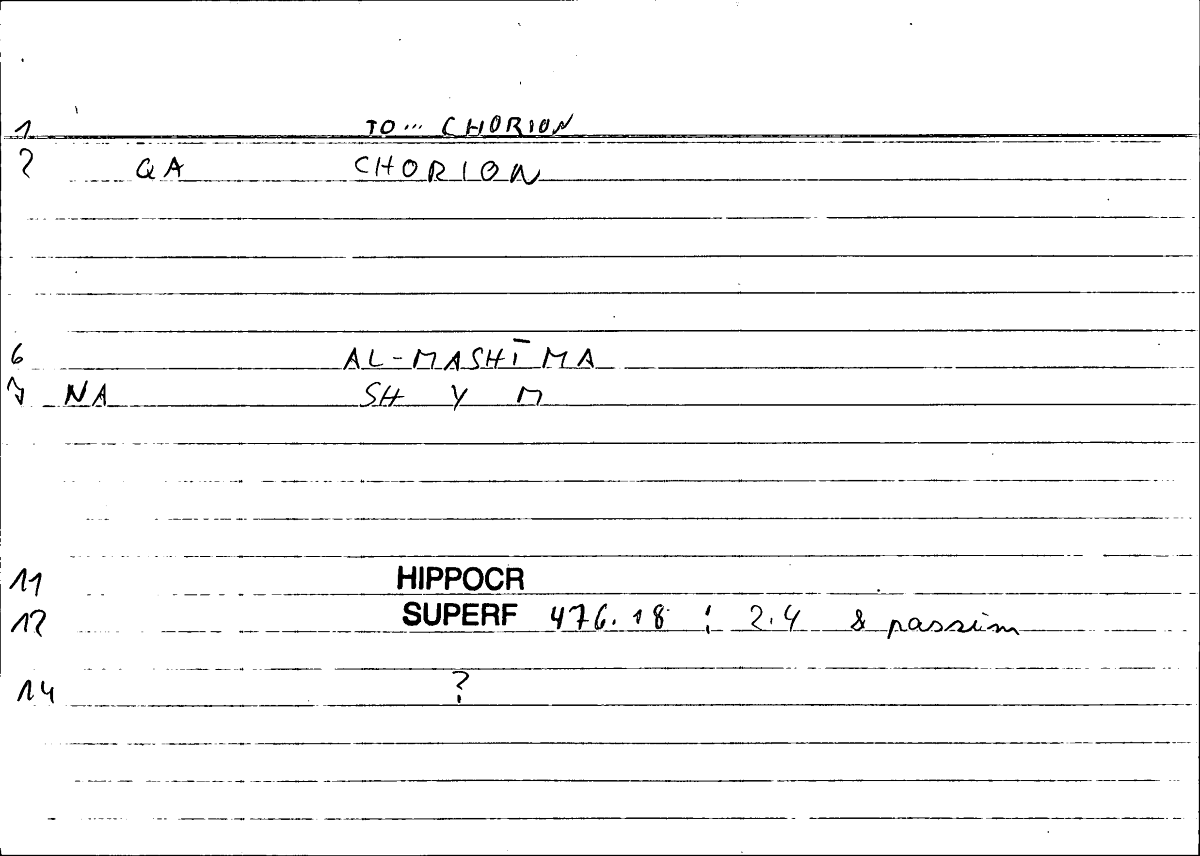 1 TO... CHORION
2 QA CHORION
6 AL-MASHĪMA
7 NA SH Y M
11 HIPPOCR
12 SUPERF 476.18 : 2.4 & passim
14 ?